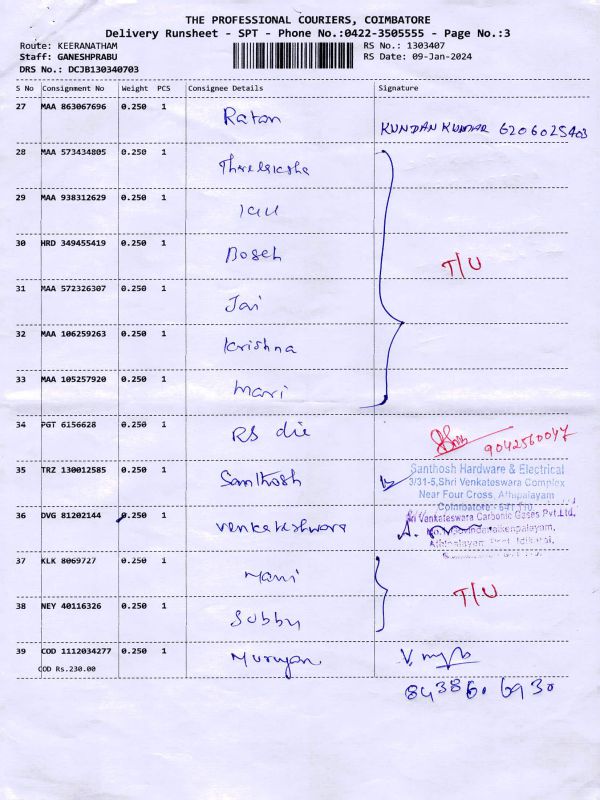 THE PROFESSIONAL COURIERS, COIMBATORE
Delivery Runsheet - SPT - Phone No.:0422-3505555 - Page No.:3
Route: KEERANATHAM RS No.: 1303407
Staff: GANESHPRABU RS Date: 09-Jan-2024
DRS No.: DCJB130340703
S No Consignment No Weight PCS Consignee Details Signature
27 MAA 863067696 0.250 1 Ratan KUNDAN KUMAR 6206025403
28 MAA 573434805 0.250 1
29 MAA 938312629 0.250 1
30 HRD 349455419 0.250 1 Bosch T/U
31 MAA 572326307 0.250 1 Jai
32 MAA 106259263 0.250 1 Krishna
33 MAA 105257920 0.250 1 Mari
34 PGT 6156628 0.250 1 RS die 9042560047
35 TRZ 130012585 0.250 1 Santhosh Santhosh Hardware & Electrical
3/31-5,Shri Venkateswara Complex
Near Four Cross, Athipalayam
Coimbatore - 641 110
36 DVG 81202144 0.250 1 Venkateshwara Sri Venkateswara Carbonic Gases Pvt.Ltd.
37 KLK 8069727 0.250 1 Mani
38 NEY 40116326 0.250 1 Subbu T/U
39 COD 1112034277 0.250 1 Murugan
COD Rs.230.00
84386. 6930